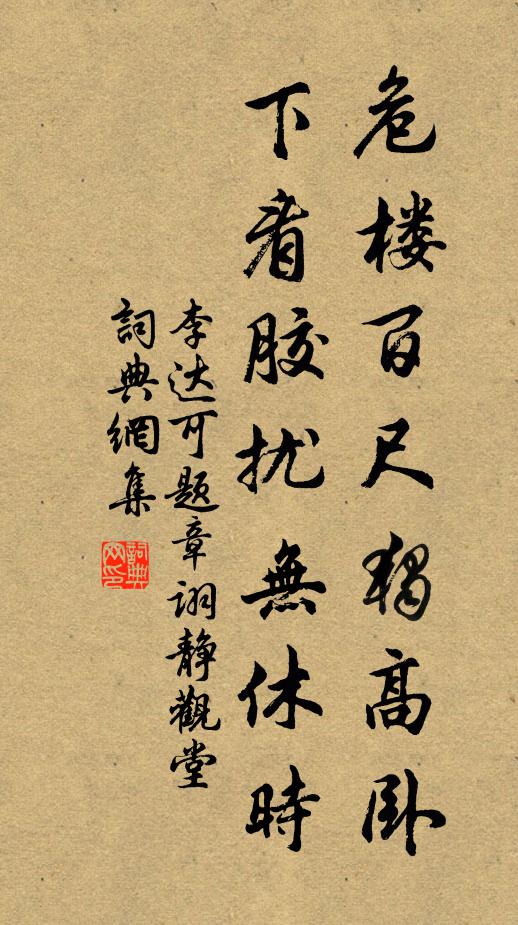 危楼百尺獨高卧
下看胶扰無休時
李达可题章诩静觀堂
詞典網集
詞典网印